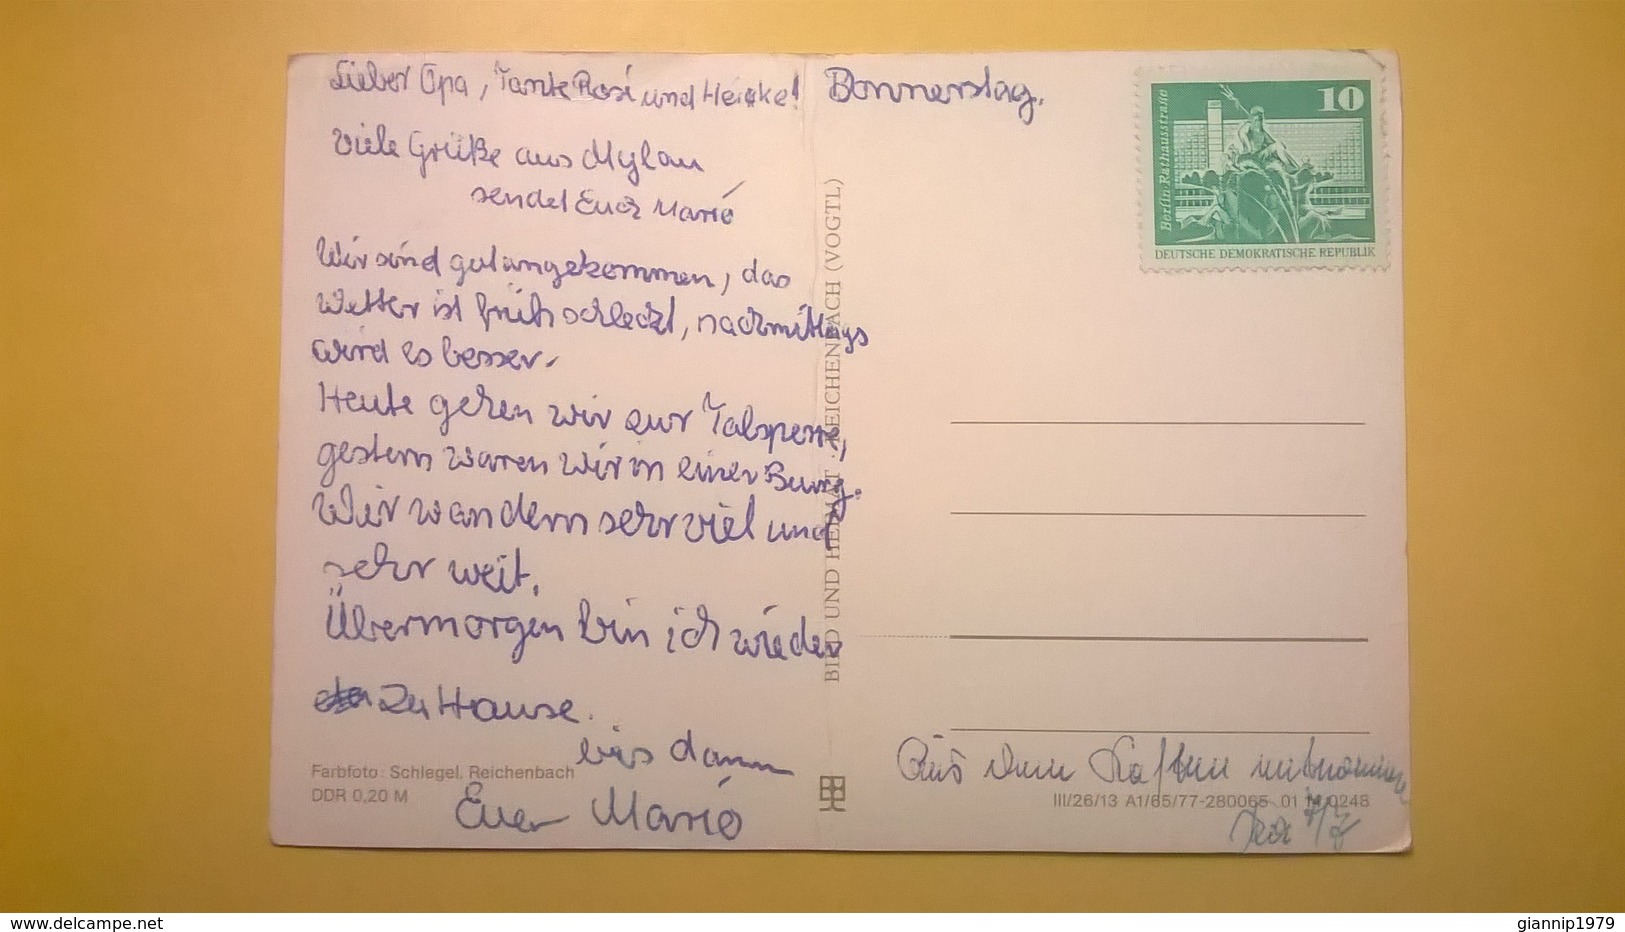 Lieber Opa, Tante Rosi und Heike!
Donnerstag.
Viele Grüße aus Mylau
sendet Euch Mario
Wir sind gut angekommen, das
Wetter ist früh schlecht, nachmittags
wird es besser.
Heute gehen wir zur Talsperre,
gestern waren wir in einer Burg.
Wir wandern sehr viel und
sehr weit.
Übermorgen bin ich wieder
zu Hause.
bis dann
Euer Mario
Farbfoto: Schlegel, Reichenbach
DDR 0,20 M
BILD UND HEIMAT · REICHENBACH (VOGTL)
10
Berlin-Rathausstraße
DEUTSCHE DEMOKRATISCHE REPUBLIK
Aus dem Kasten
III/26/13 A1/65/77-280065 01 14 0248
www.delcampe.net
giannip1979